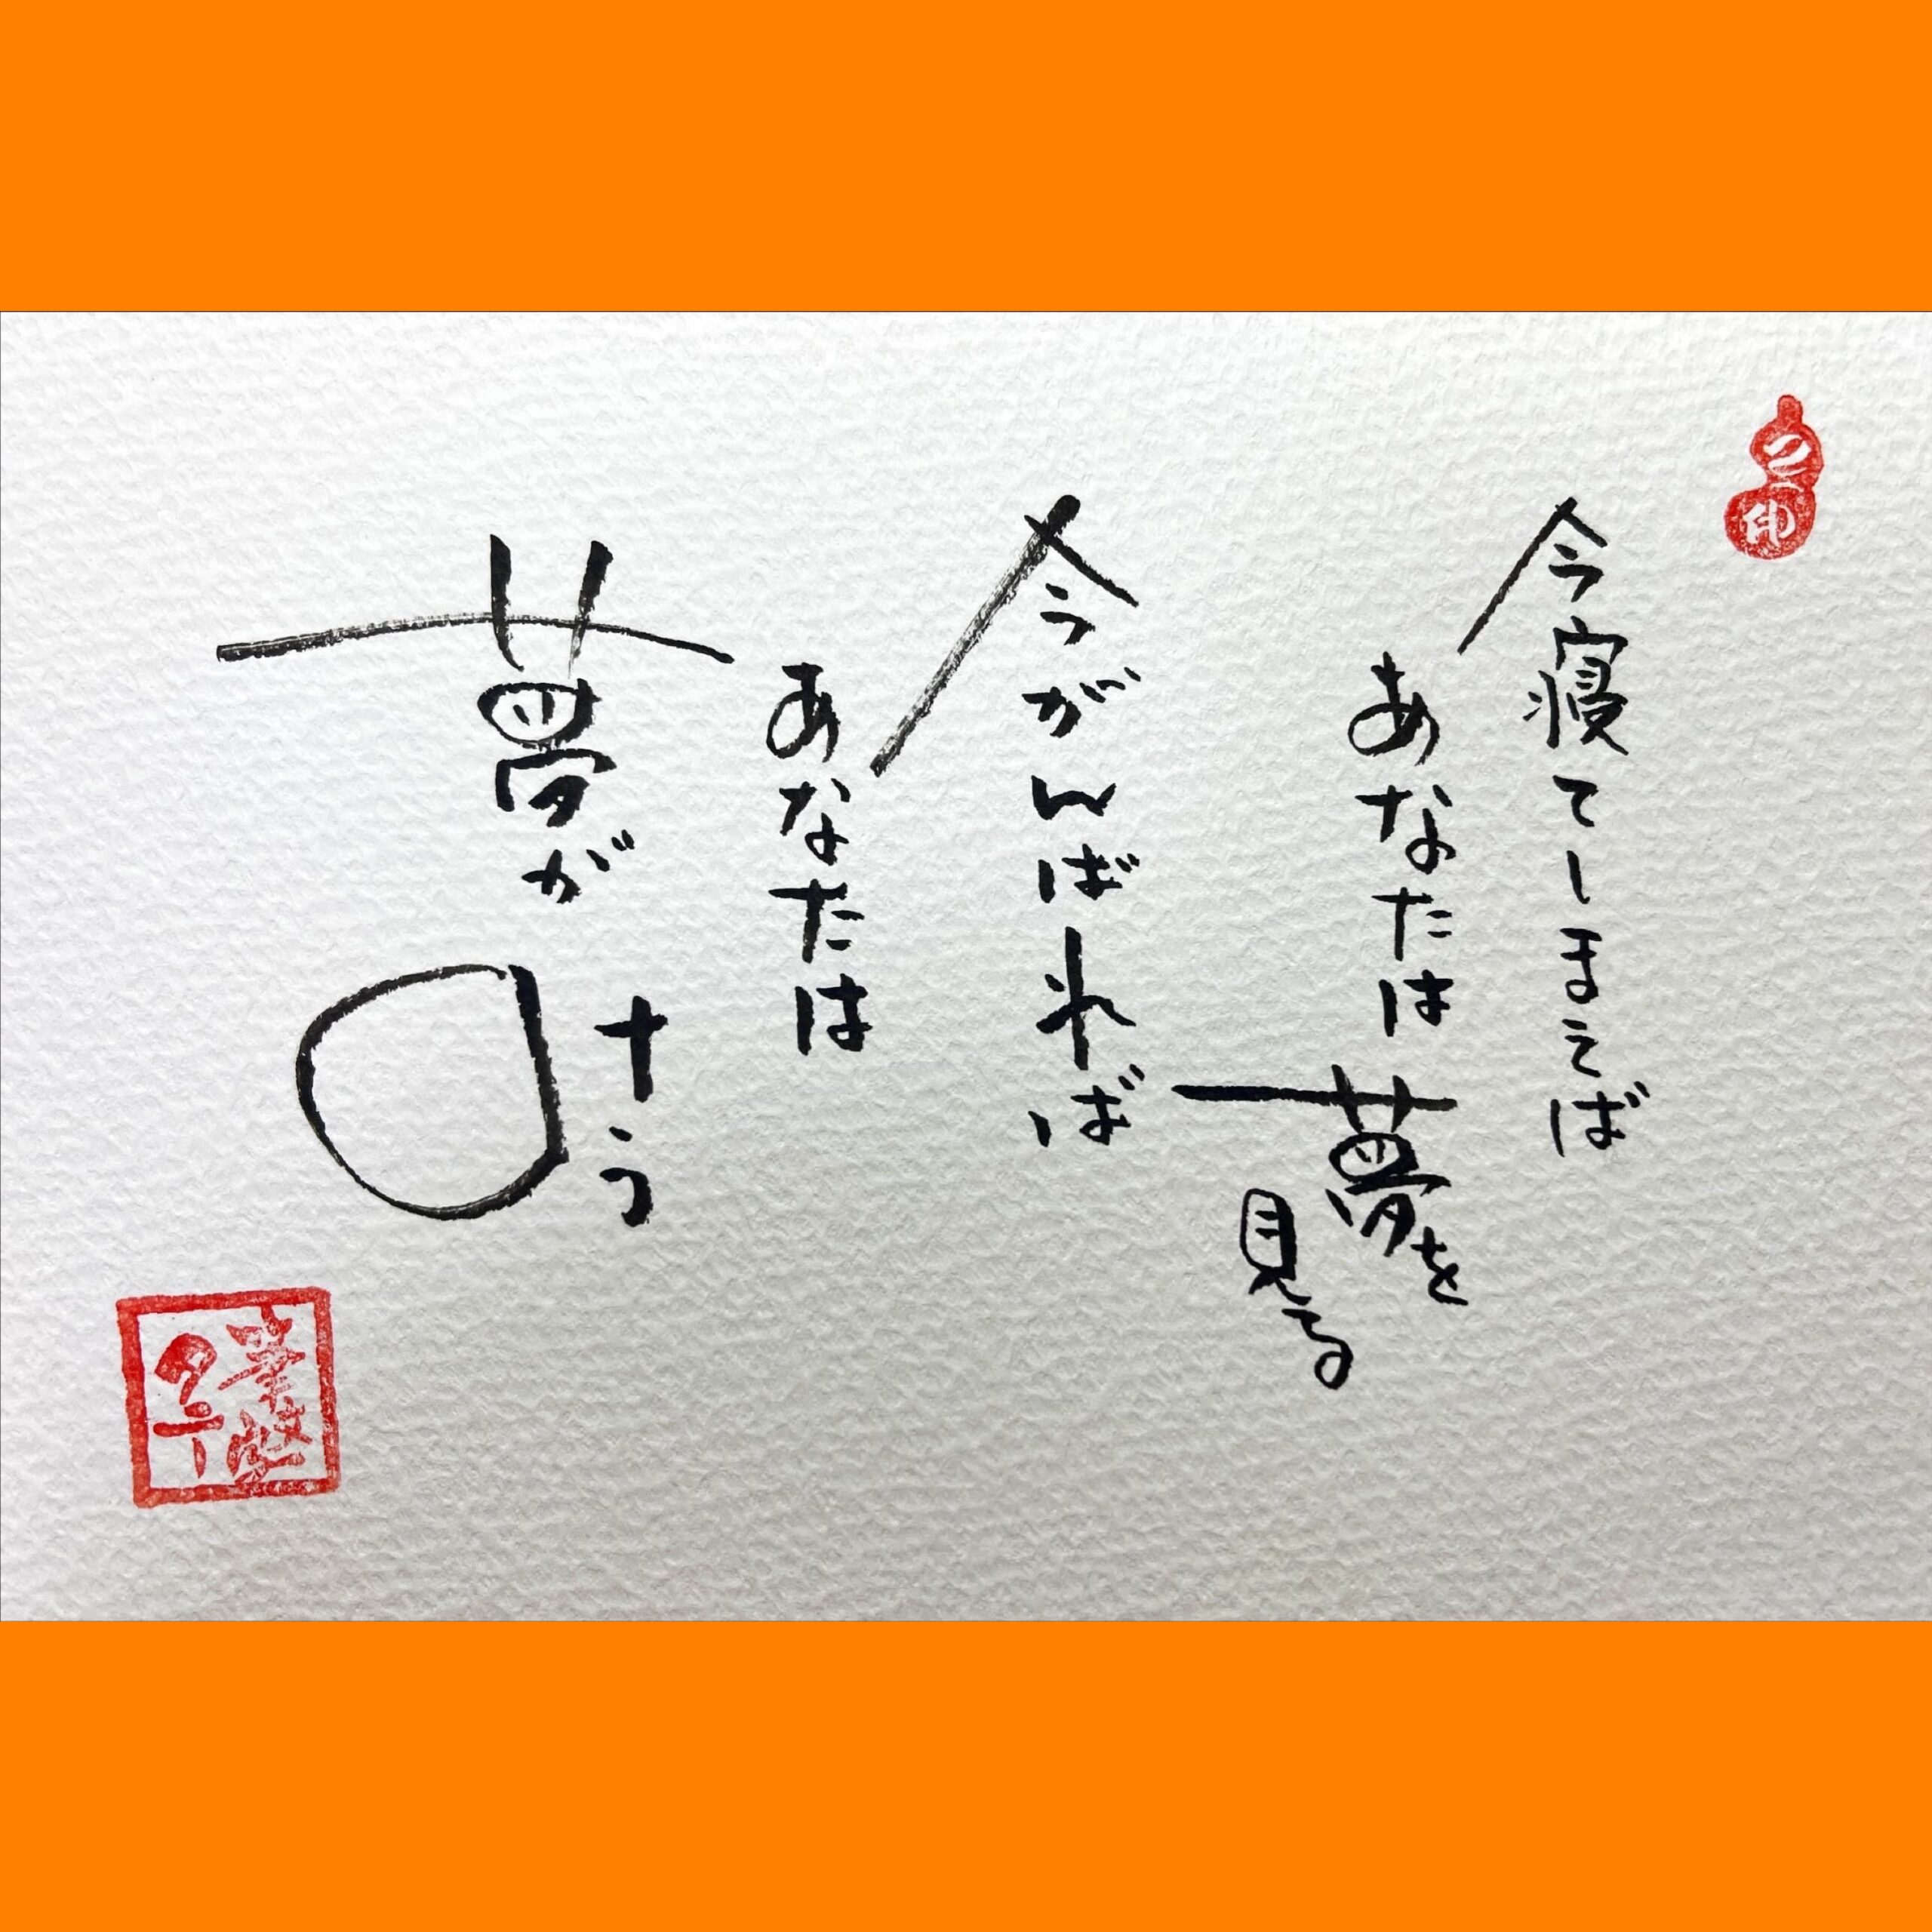 今寝てしまえば
あなたは夢を
見る
今がんばれば
あなたは
夢が
叶う